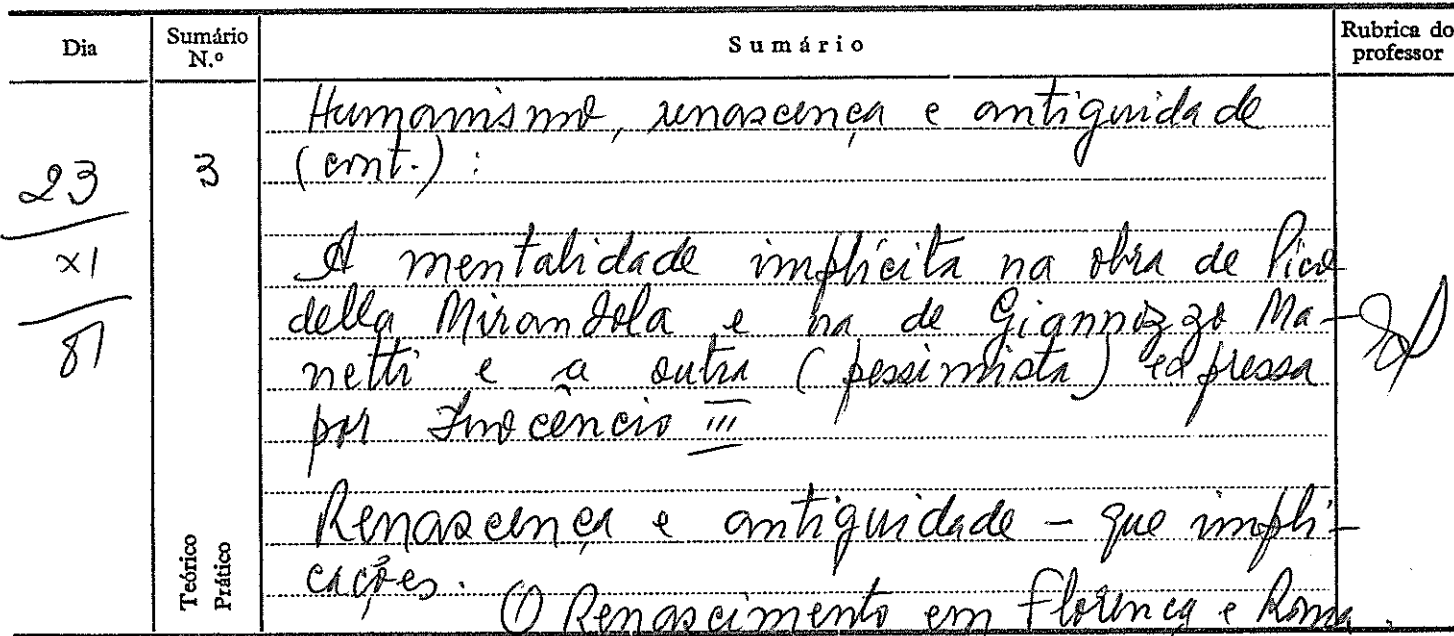 Dia
Sumário N.º
Sumário
Rubrica do professor
23
XI
81
3
Teórico
Prático
Humanismo, renascença e antiguidade
(cont.) :
A mentalidade implícita na obra de Pico
della Mirandola e na de Giannozzo Ma-
netti e a outra (pessimista) expressa
por Inocêncio III
Renascença e antiguidade – que impli-
cações.
O Renascimento em Florença e Roma.